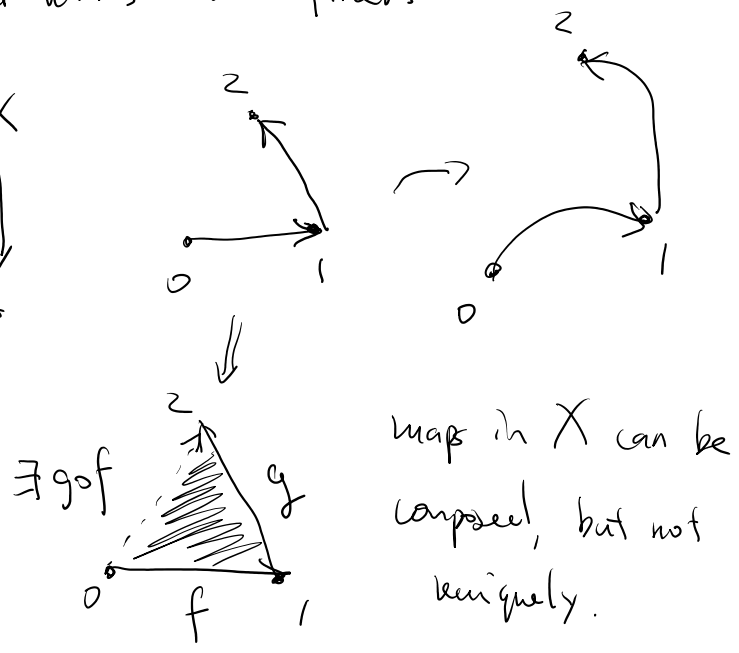 2
2
0
1
0
1
2
∃ g∘f
g
0
f
1
maps in X can be
composed, but not
uniquely.